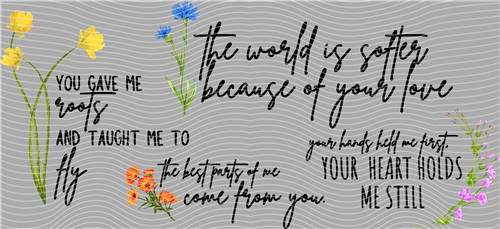 the world is softer
because of your love
YOU GAVE ME
roots
AND TAUGHT ME TO
fly
the best parts of me
come from you.
your hands held me first,
YOUR HEART HOLDS
ME STILL